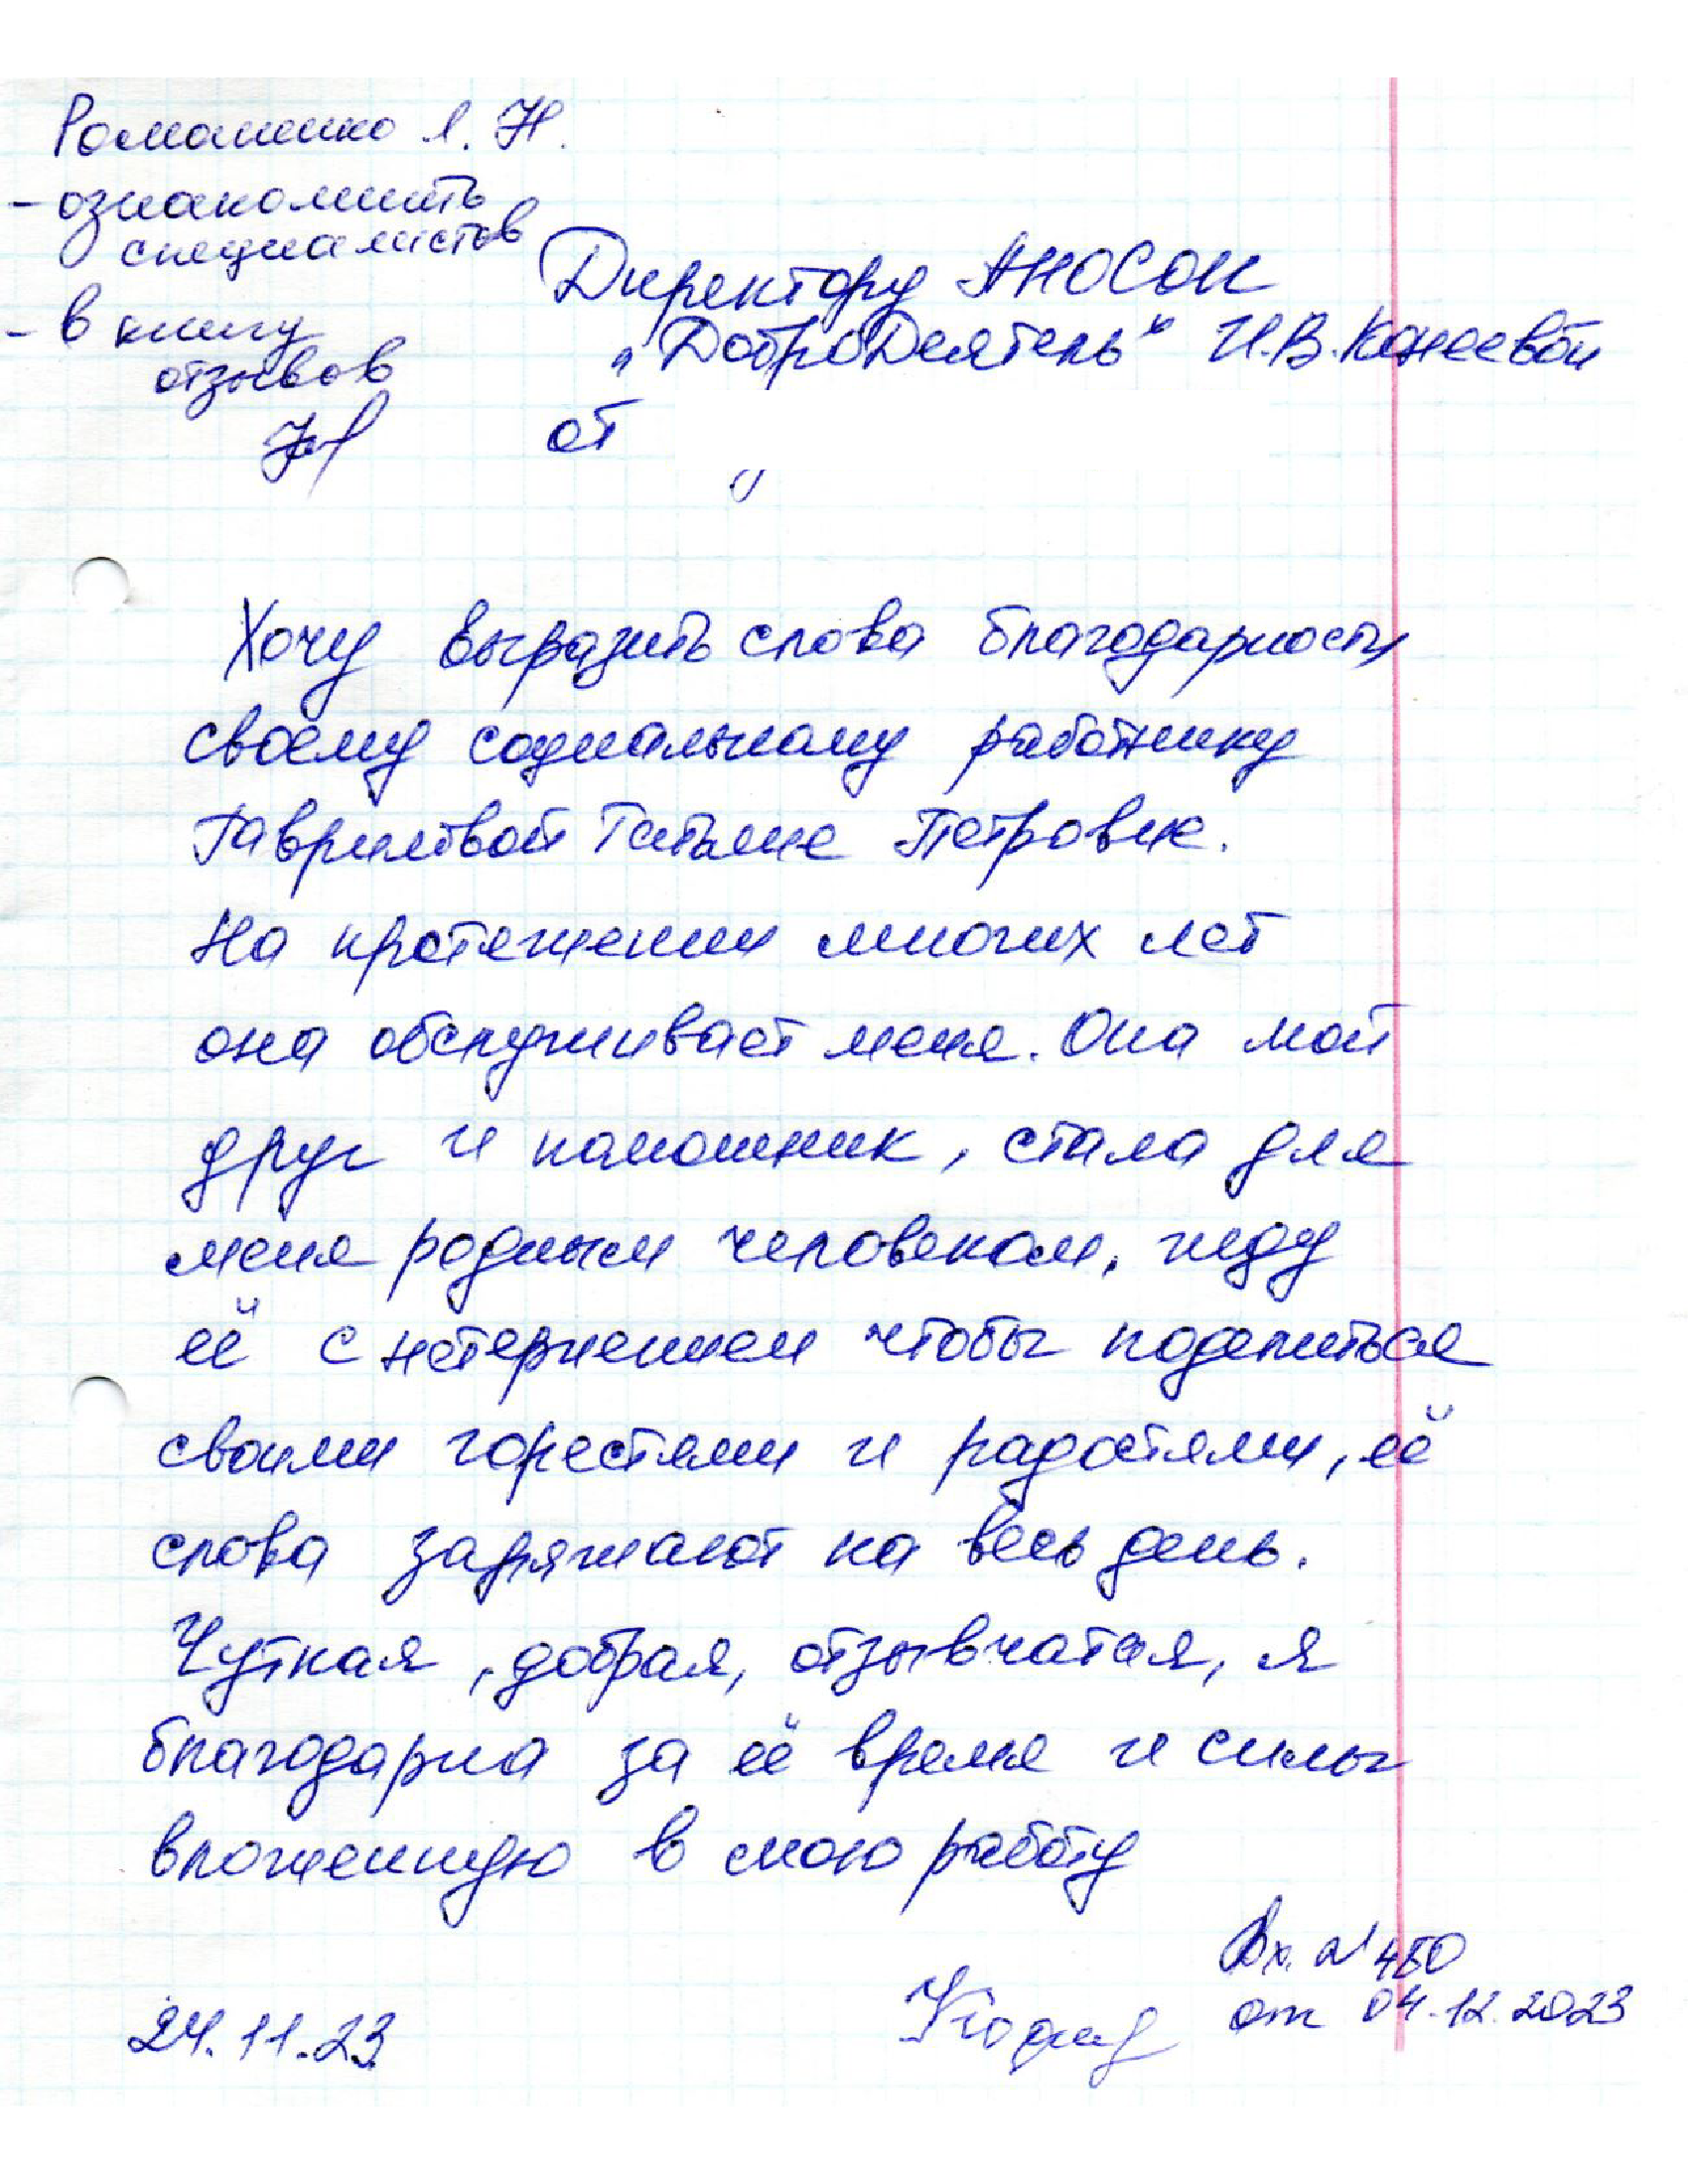 Романенко Л. Н.
- ознакомить
специалистов
- в книгу
отзывов
Директору АНОСОН
"ДоброДеятель" И.В. Конеевой
от
Хочу выразить слова благодарности
своему социальному работнику
Гавриловой Татьяне Петровне.
На протяжении многих лет
она обслуживает меня. Она мой
друг и помошник, стала для
меня родным человеком, жду
её с нетерпением чтобы поделиться
своими горестями и радостями, её
слова заряжают на весь день.
Чуткая, добрая, отзывчатая, я
благодарна за её время и силы
вложенную в мою работу
Вх. N 450
24.11.23
от 04.12.2023